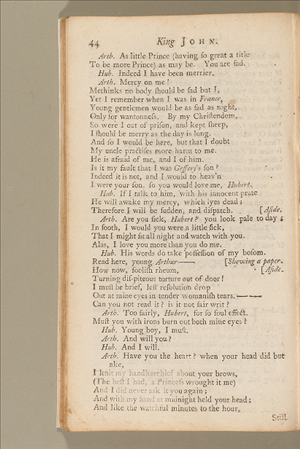 44 King JOHN.
Arth. As little Prince (having so great a title
To be more Prince) as may be. You are sad.
Hub. Indeed I have been merrier.
Arth. Mercy on me!
Methinks no body should be sad but I,
Yet I remember when I was in France,
Young gentlemen would be as sad as night,
Only for wantonness. By my Christendom,
So were I out of prison, and kept sheep,
I should be merry as the day is long.
And so I would be here, but that I doubt
My uncle practises more harm to me.
He is afraid of me, and I of him.
Is it my fault that I was Geffery's son?
Indeed it is not, and I would to heav'n
I were your son, so you would love me, Hubert.
Hub. If I talk to him, with his innocent prate
He will awake my mercy, which lyes dead;
Therefore I will be sudden, and dispatch. [Aside.
Arth. Are you sick, Hubert? you look pale to day;
In sooth, I would you were a little sick,
That I might sit all night and watch with you.
Alas, I love you more than you do me.
Hub. His words do take possession of my bosom.
Read here, young Arthur—— [Shewing a paper.
How now, foolish rheum, [Aside.
Turning dis-piteous torture out of door!
I must be brief, lest resolution drop
Out at mine eyes in tender womanish tears.——
Can you not read it? is it not fair writ?
Arth. Too fairly, Hubert, for so foul effect.
Must you with irons burn out both mine eyes?
Hub. Young boy, I must.
Arth. And will you?
Hub. And I will.
Arth. Have you the heart? when your head did but
ake,
I knit my handkerchief about your brows,
(The best I had, a Princess wrought it me)
And I did never ask it you again;
And with my hand at midnight held your head;
And like the watchful minutes to the hour,
Still